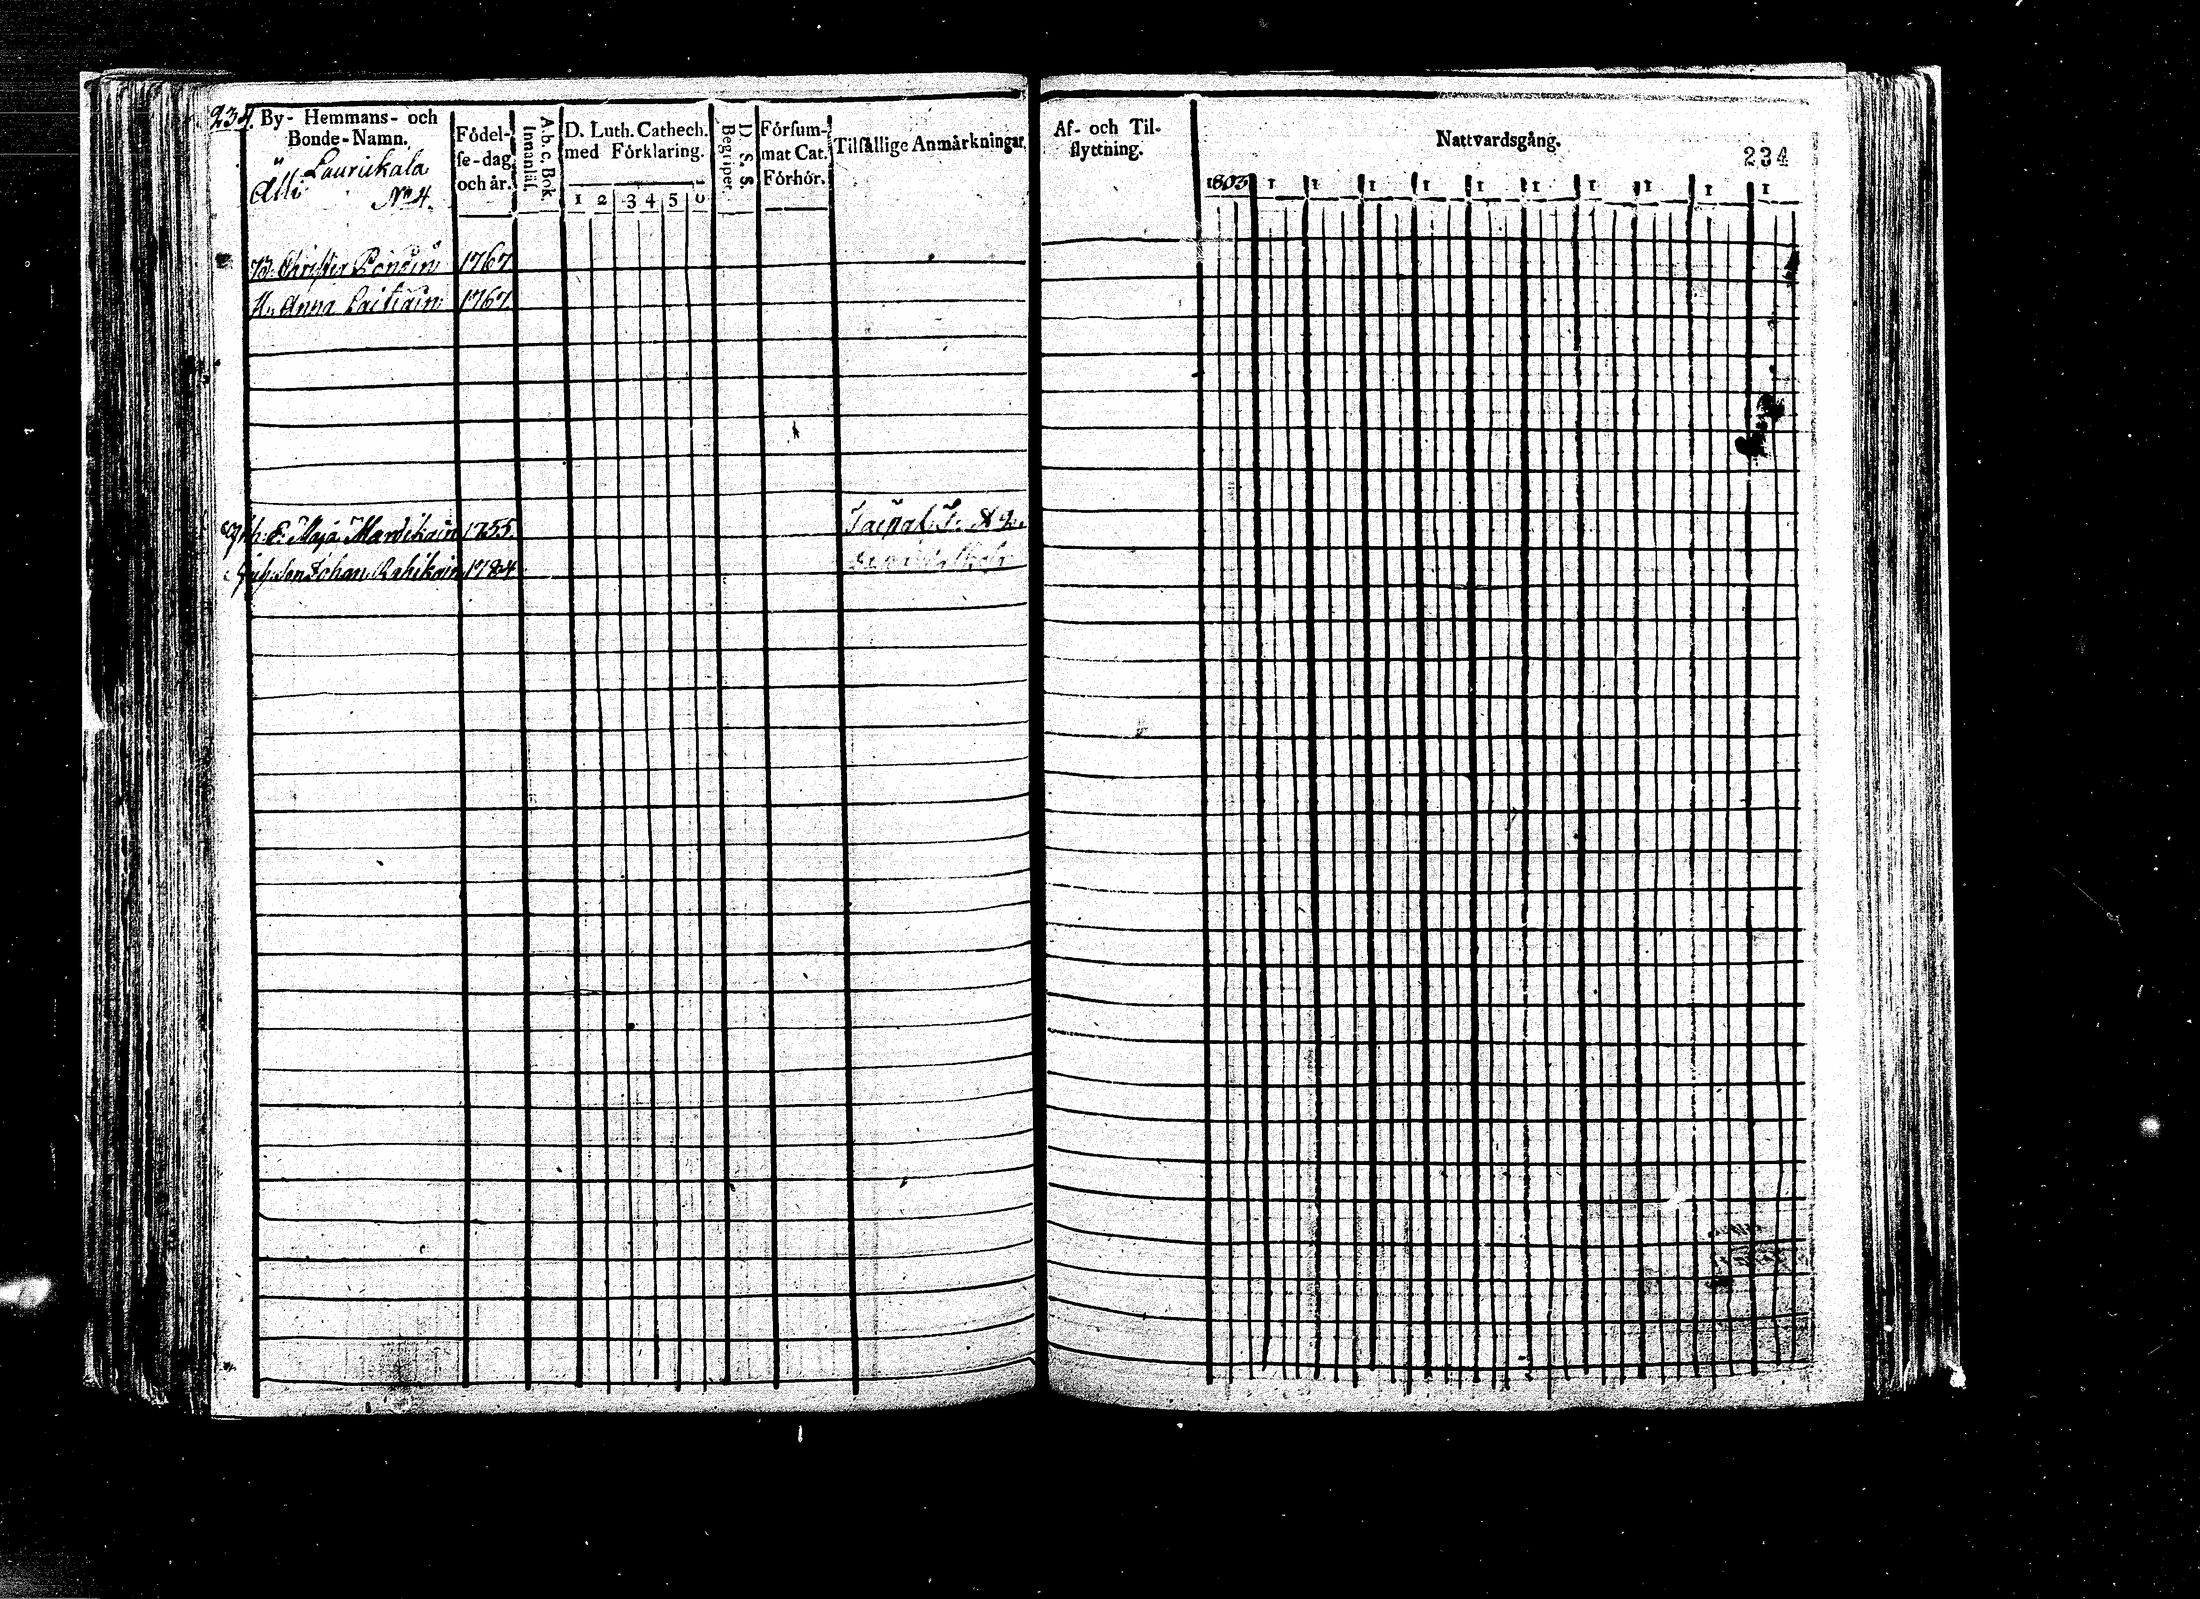 234.
By- Hemmans- och
Bonde-Namn.
Laurikala
Älli
No 4.
Födel-
se-dag
och år.
A. b. c. Bok.
Innanläs.
D. Luth. Cathech.
med Förklaring.
1 2 3 4 5 6
D. S. S.
Begriper.
Försum-
mat Cat.
Förhör.
Tilfällige Anmärkningar.
B. Christer Pondin 1767
H. Anna Laitiain 1767.
E. Maja Mandikain 1755.
Son Johan Rahikain 1784
Taipal
Af- och Til-
flyttning.
Nattvardsgång.
234
1803 1 1 1 1 1 1 1 1 1 1